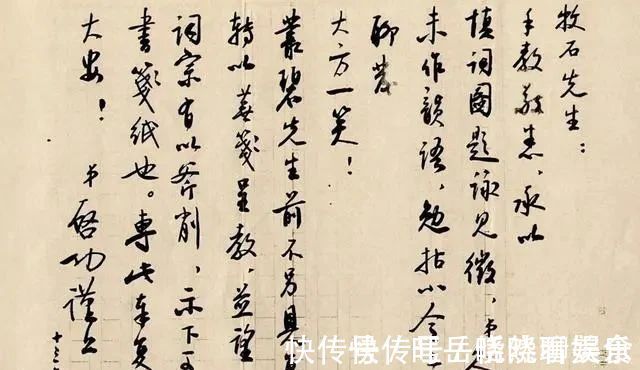 牧石先生：
手教敬悉，承以
填词图题詠见徵，弟久
未作韻语，勉拈小令
聊发
大方一笑！
叢碧先生前不另具
转以芜笺呈教，並望
词宗有以斧削，示下再
书笺纸也。专此奉复
大安！
弟启功谨上
十三
快传号